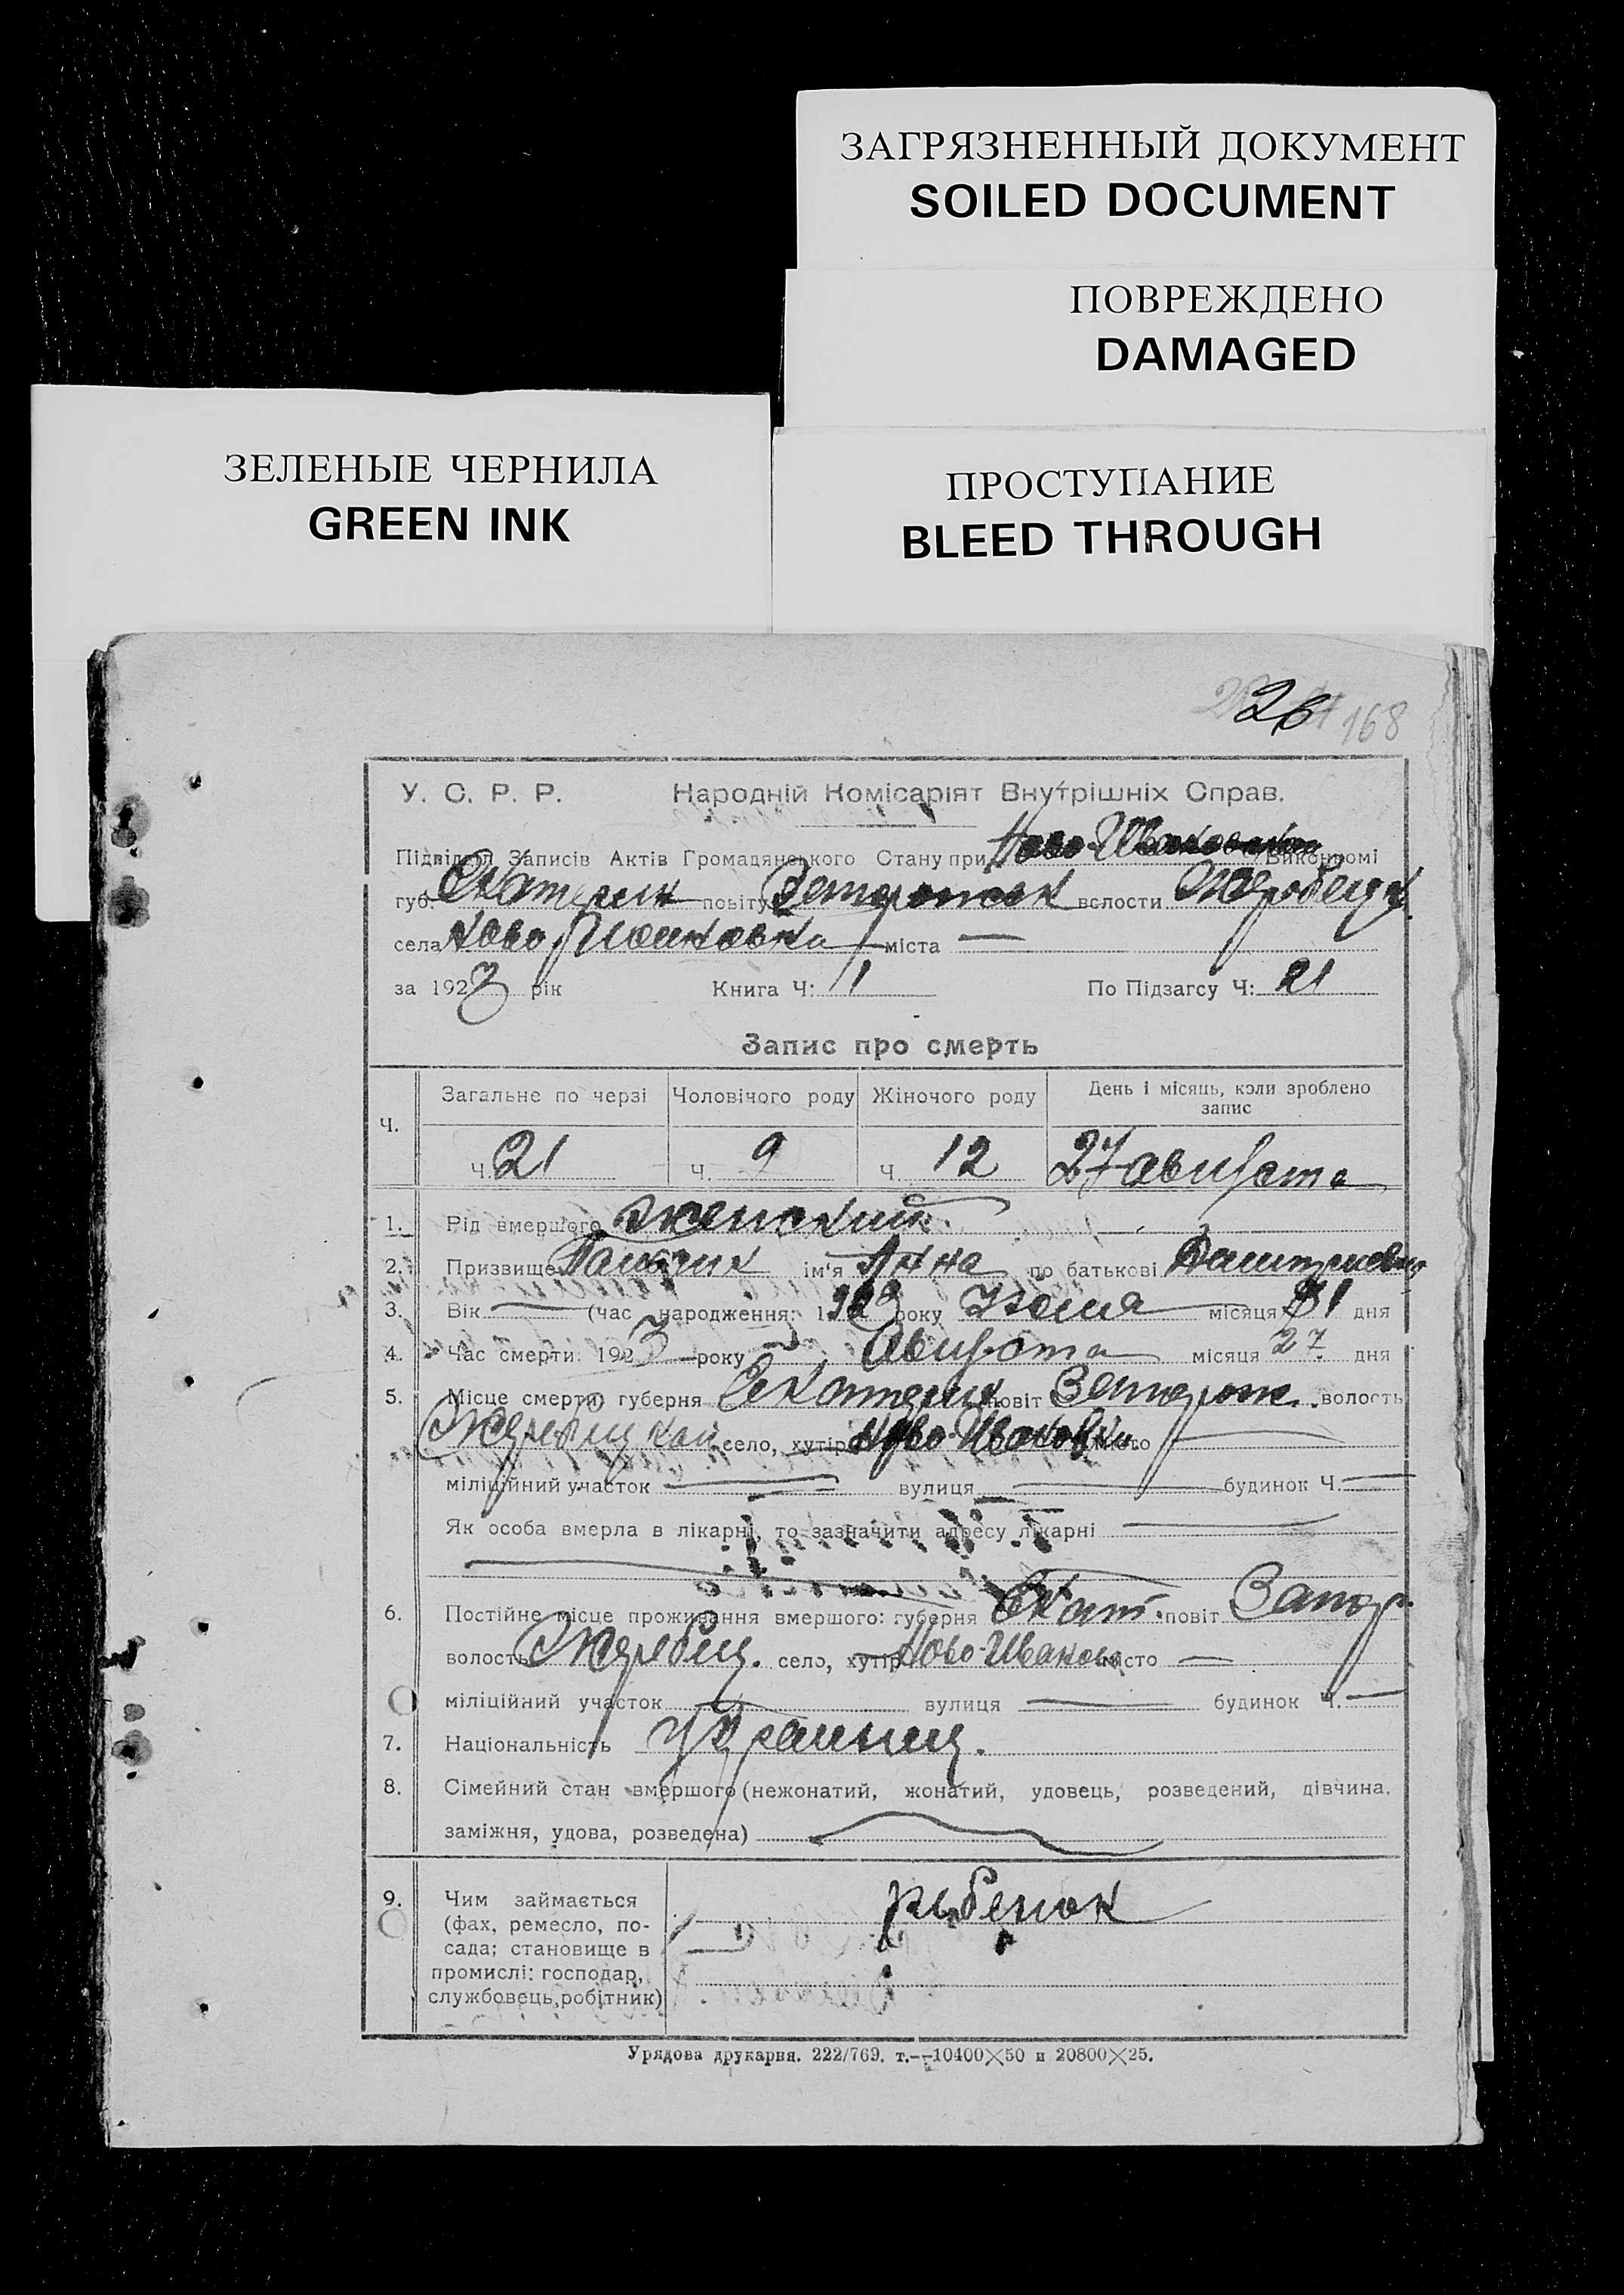 ЗАГРЯЗНЕННЫЙ ДОКУМЕНТ
SOILED DOCUMENT
ПОВРЕЖДЕНО
DAMAGED
ЗЕЛЕНЫЕ ЧЕРНИЛА
GREEN INK
ПРОСТУПАНИЕ
BLEED THROUGH
26 168
У. С. Р. Р. Народній Комісаріят Внутрішніх Справ.
Підвідділ Записів Актів Громадянського Стану при Виконкомі
губ. Екатерин повіту волости Жеребецк
села Ново міста —
за 1923 рік Книга Ч: 1 По Підзагсу Ч: 21
Запис про смерть
Ч. Загальне по черзі Чоловічого роду Жіночого роду День і місяць, коли зроблено запис
Ч. 21 Ч. 9 Ч. 12 27 августа
1. Рід вмершого женский
2. Призвище ім'я Анна по батькові
3. Вік — (час народження: 1923 року Июля місяця 31 дня
4. Час смерти: 1923 року Августа місяця 27 дня
5. Місце смерти: губерня Екатерин повіт Запорож. волость
Жеребецкой село, хутір Ново-Ивановка місто —
міліційний участок — вулиця — будинок Ч. —
Як особа вмерла в лікарні, то зазначити адресу лікарні —
6. Постійне місце проживання вмершого: губерня Екат. повіт Запор.
волость Жеребец. село, хутір Ново-Иванов місто —
міліційний участок — вулиця — будинок Ч. —
7. Національність Украинец.
8. Сімейний стан вмершого (нежонатий, жонатий, удовець, розведений, дівчина,
заміжня, удова, розведена)
9. Чим займається рыбенок
(фах, ремесло, по-
сада; становище в
промислі: господар,
службовець, робітник)
Урядова друкарня. 222/769. т.—10400×50 и 20800×25.